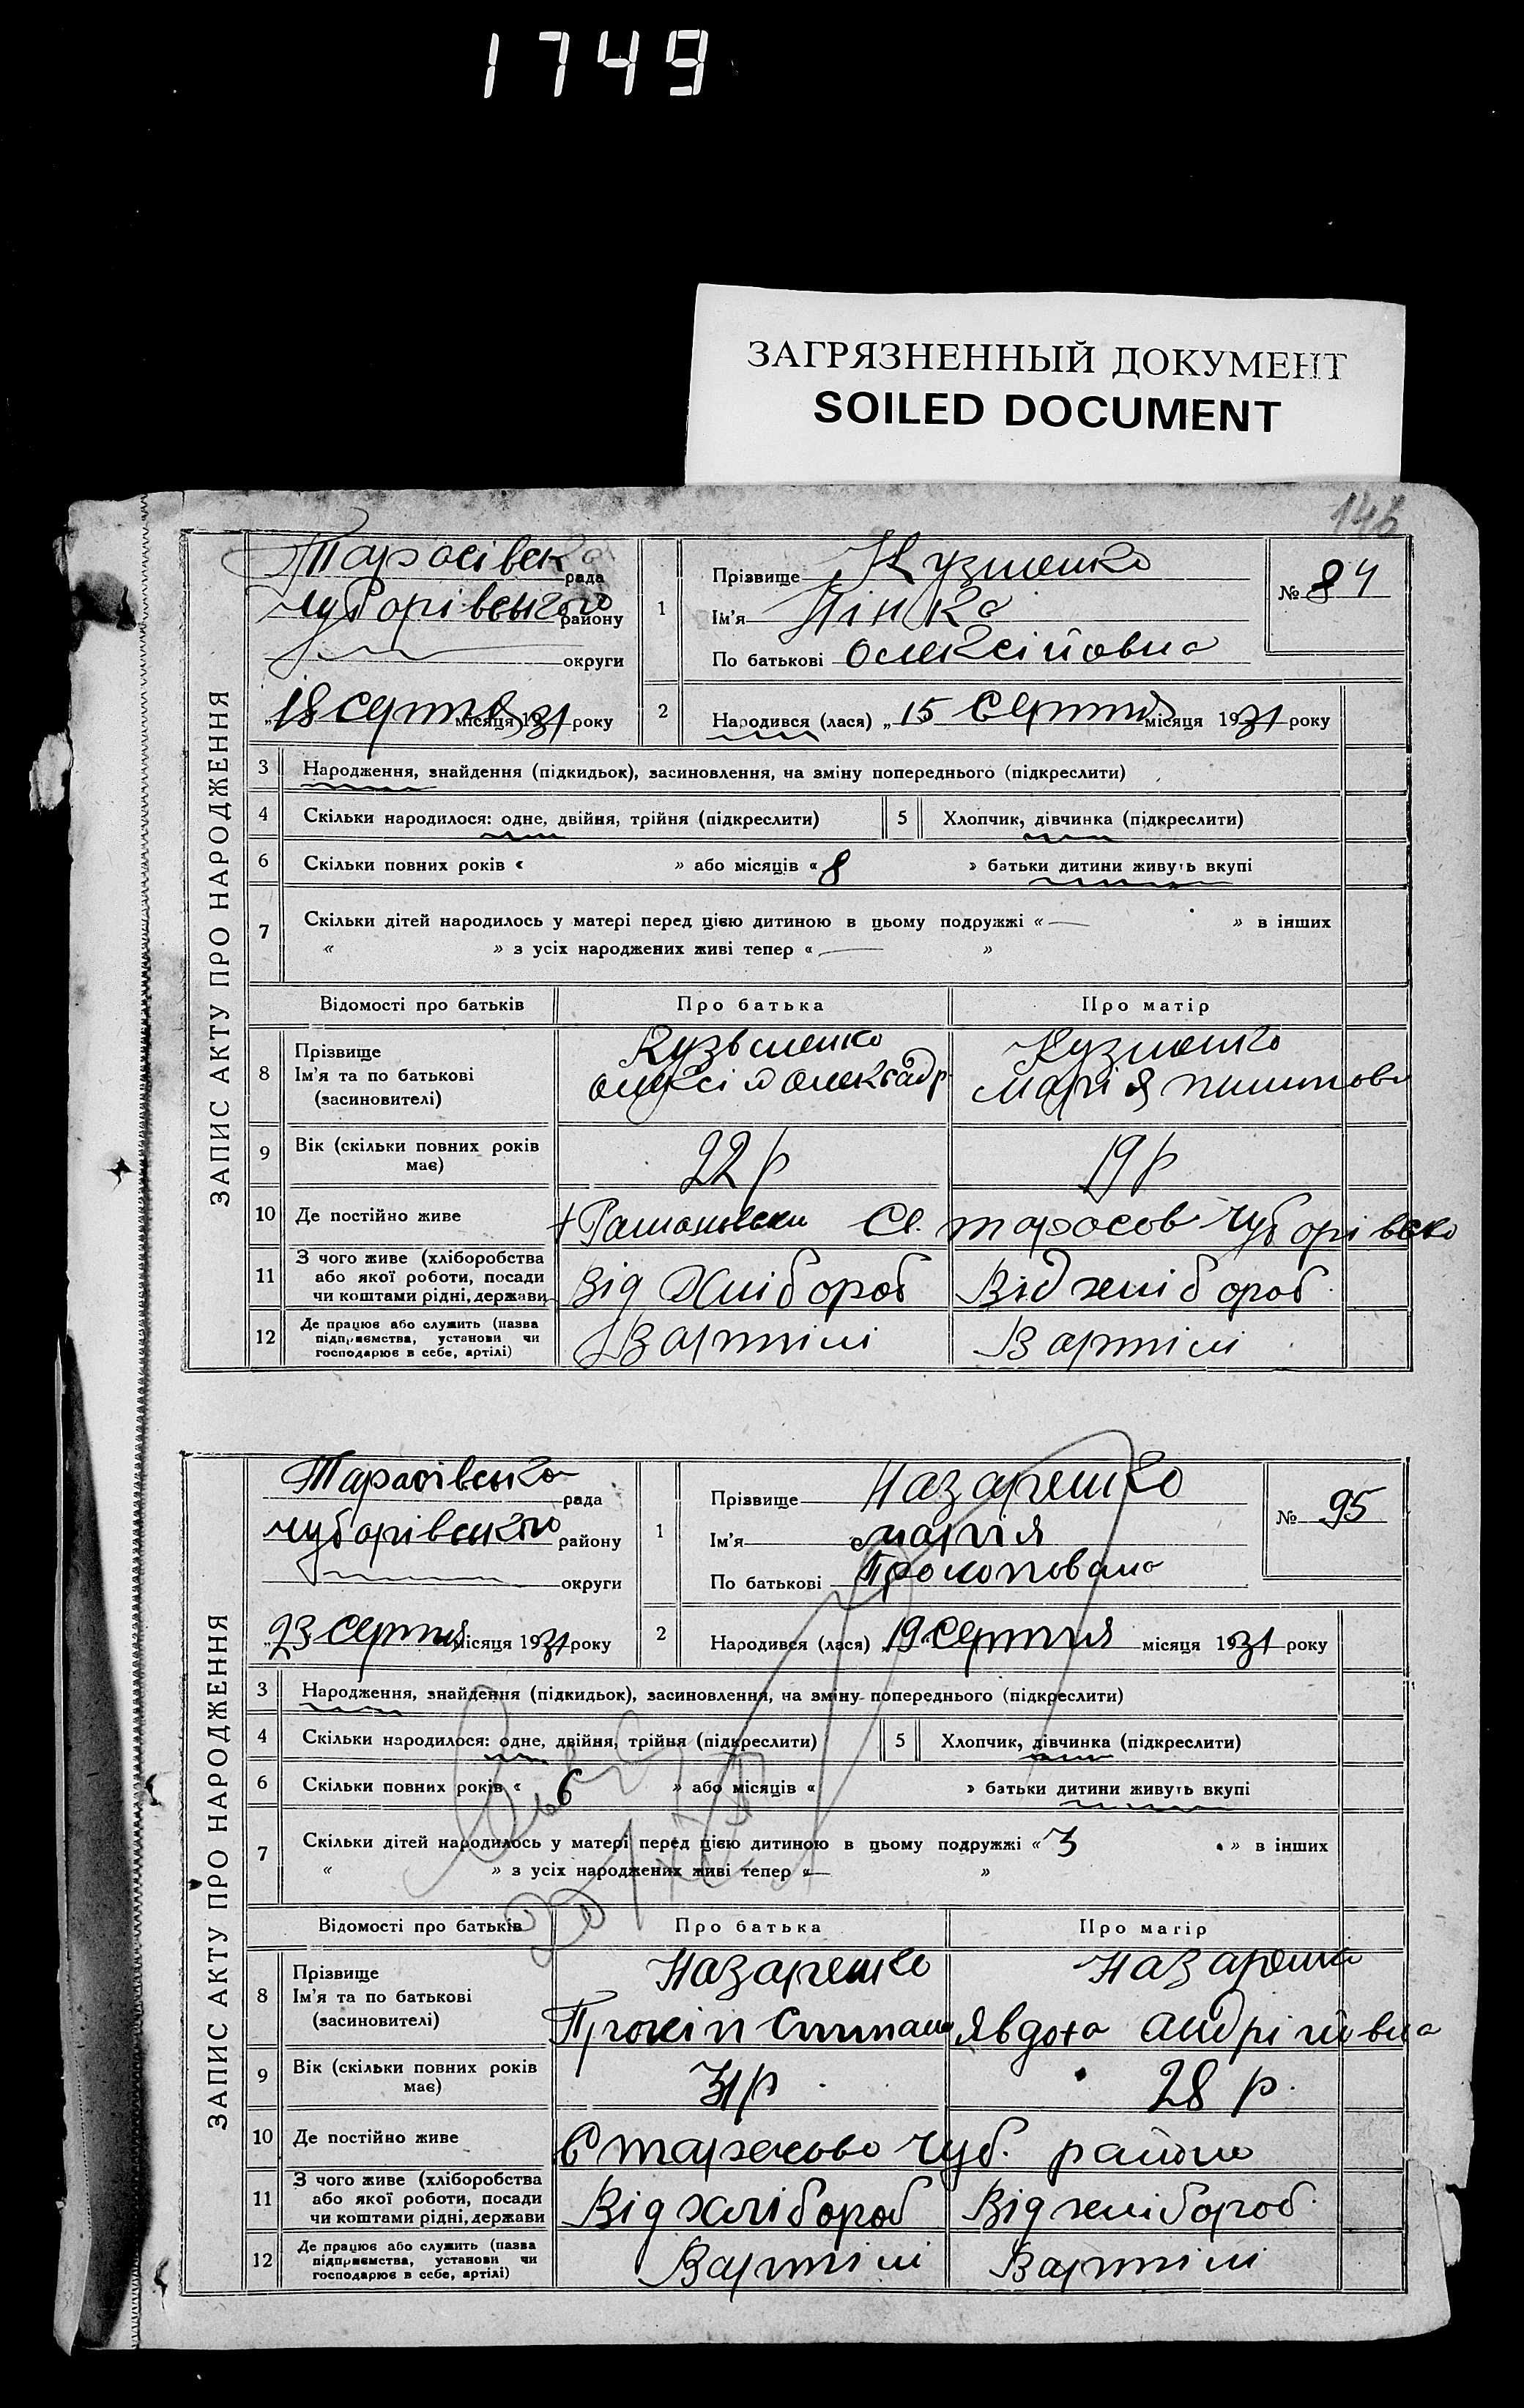 1749
ЗАГРЯЗНЕННЫЙ ДОКУМЕНТ
SOILED DOCUMENT
146
ЗАПИС АКТУ ПРО НАРОДЖЕННЯ
Тарасівська рада
Чубарівського району
округи
„18 Серпня місяця 1931 року
1
Прізвище Кузменко
Ім'я Нінка
По батькові Олексійовна
№ 84
2
Народився (лася) „15 Серпня місяця 1931 року
3 Народження, знайдення (підкидьок), засиновлення, на зміну попереднього (підкреслити)
4 Скільки народилося: одне, двійня, трійня (підкреслити) 5 Хлопчик, дівчинка (підкреслити)
6 Скільки повних років « » або місяців «8 » батьки дитини живуть вкупі
7 Скільки дітей народилось у матері перед цією дитиною в цьому подружжі «— » в інших
« » з усіх народжених живі тепер «— »
Відомості про батьків Про батька Про матір
8 Прізвище
Ім'я та по батькові
(засиновителі)
Кузьменко
Олексій Олексадр
Кузменко
Марія
9 Вік (скільки повних років має) 22 р 19 р
10 Де постійно живе Се. тарасов Чубарівско
11 З чого живе (хліборобства
або якої роботи, посади
чи коштами рідні, держави
Від Хлібороб Від хлібороб
12 Де працює або служить (назва
підприємства, установи чи
господарює в себе, артілі)
Вартілі Вартілі
ЗАПИС АКТУ ПРО НАРОДЖЕННЯ
Тарасівська рада
Чубарівського району
округи
„23 Серпня місяця 1931 року
1
Прізвище Назаренко
Ім'я Марія
По батькові Прокоповна
№ 95
2
Народився (лася) 19 Серпня місяця 1931 року
3 Народження, знайдення (підкидьок), засиновлення, на зміну попереднього (підкреслити)
4 Скільки народилося: одне, двійня, трійня (підкреслити) 5 Хлопчик, дівчинка (підкреслити)
6 Скільки повних років « 6 » або місяців « » батьки дитини живуть вкупі
7 Скільки дітей народилось у матері перед цією дитиною в цьому подружжі «3 » в інших
« » з усіх народжених живі тепер «— »
Відомості про батьків Про батька Про матір
8 Прізвище
Ім'я та по батькові
(засиновителі)
Назаренко
Прокіп
Назаренко
Явдоха Андрійовна
9 Вік (скільки повних років має) 31 р 28 р.
10 Де постійно живе Чуб. району
11 З чого живе (хліборобства
або якої роботи, посади
чи коштами рідні, держави
Від хлібороб Від хлібороб
12 Де працює або служить (назва
підприємства, установи чи
господарює в себе, артілі)
Вартілі Вартілі